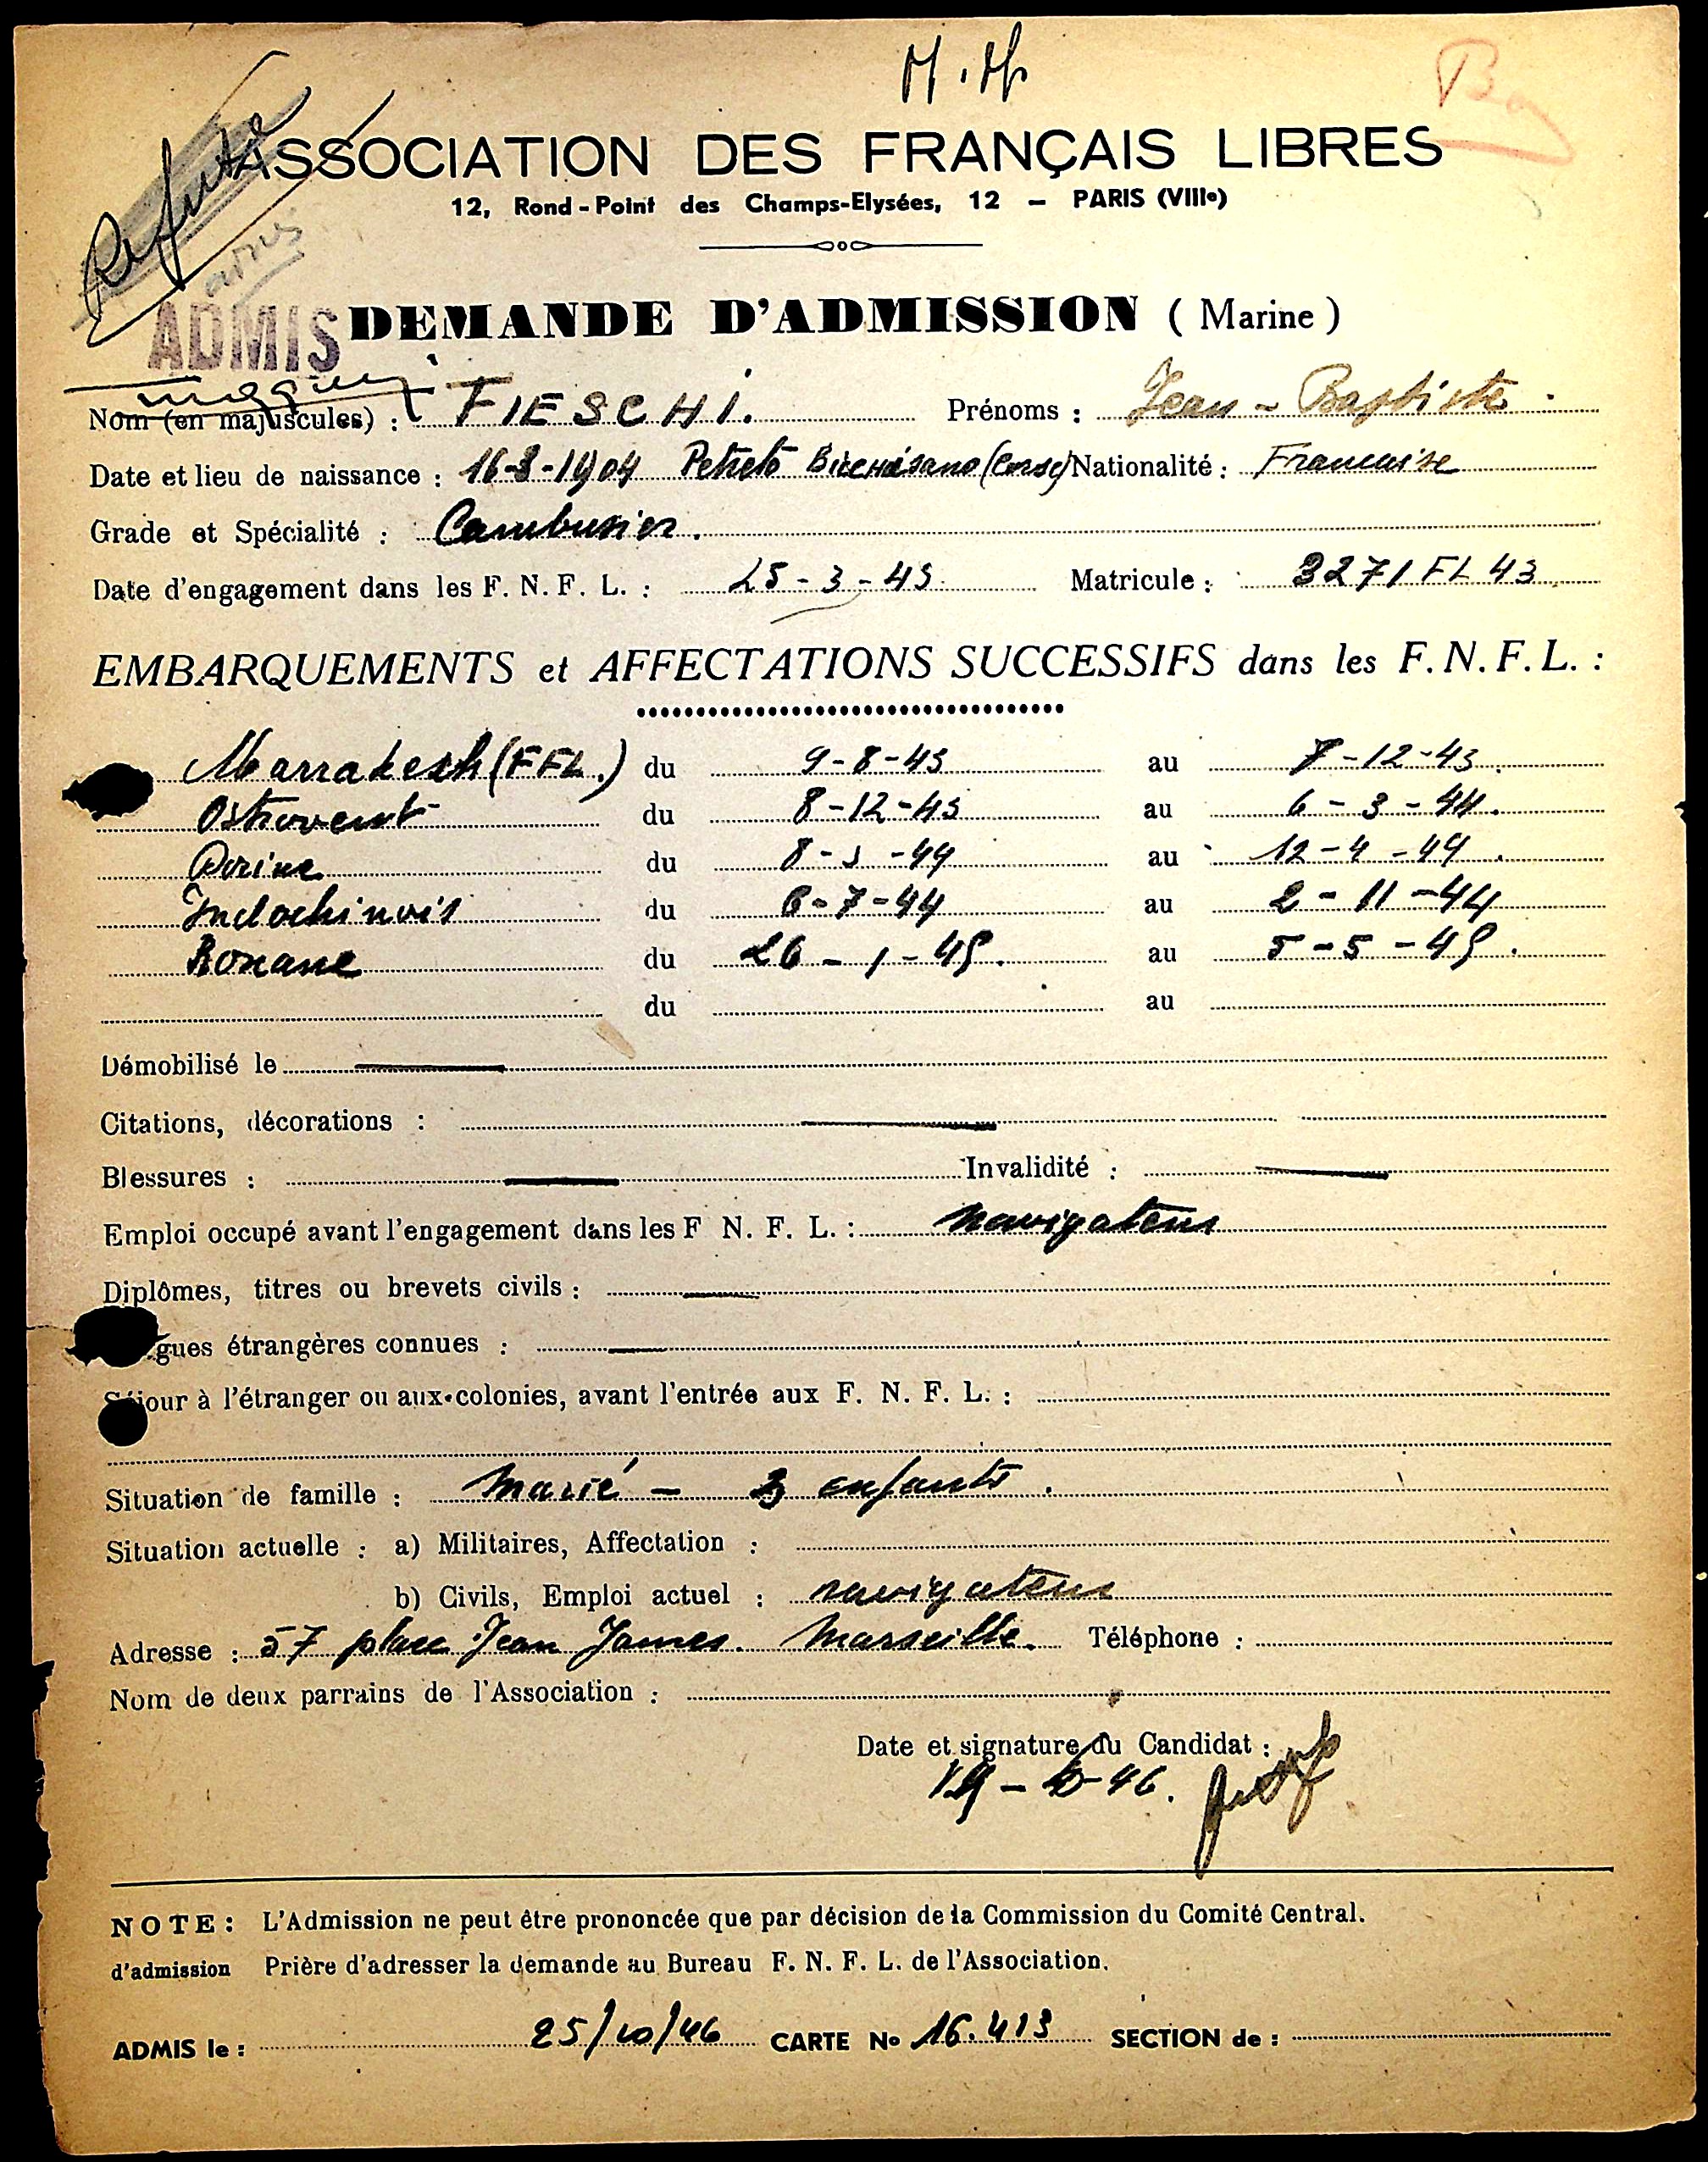 M.M
Bon
Refusé
ASSOCIATION DES FRANÇAIS LIBRES
12, Rond-Point des Champs-Elysées, 12 — PARIS (VIIIe)
admis
ADMIS
DEMANDE D'ADMISSION ( Marine )
Nom (en majuscules) : FIESCHI. Prénoms : Jean-Baptiste
Date et lieu de naissance : 16-8-1904 Petreto Bicchisano (Corse) Nationalité : Francaise
Grade et Spécialité : Cambusier.
Date d'engagement dans les F. N. F. L. : 25-3-43 Matricule : 3271 FL 43
EMBARQUEMENTS et AFFECTATIONS SUCCESSIFS dans les F. N. F. L. :
Marrakech (FFL.) du 9-8-43 au 7-12-43.
Ostrovent du 8-12-43 au 6-3-44.
du 8-3-44 au 12-4-44.
Indochinois du 6-7-44 au 2-11-44
du 26-1-45. au 5-5-45.
du au
Démobilisé le —
Citations, décorations : —
Blessures : — Invalidité : —
Emploi occupé avant l'engagement dans les F N. F. L. : navigateur
Diplômes, titres ou brevets civils : —
gues étrangères connues : —
Séjour à l'étranger ou aux colonies, avant l'entrée aux F. N. F. L. :
Situation de famille : Marié — 3 enfants.
Situation actuelle : a) Militaires, Affectation :
b) Civils, Emploi actuel : navigateur
Adresse : 57 place Jean Jaures. Marseille. Téléphone :
Nom de deux parrains de l'Association :
Date et signature du Candidat :
19-6-46.
NOTE : L'Admission ne peut être prononcée que par décision de la Commission du Comité Central.
d'admission Prière d'adresser la demande au Bureau F. N. F. L. de l'Association.
ADMIS le : 25/10/46 CARTE No 16.413 SECTION de :